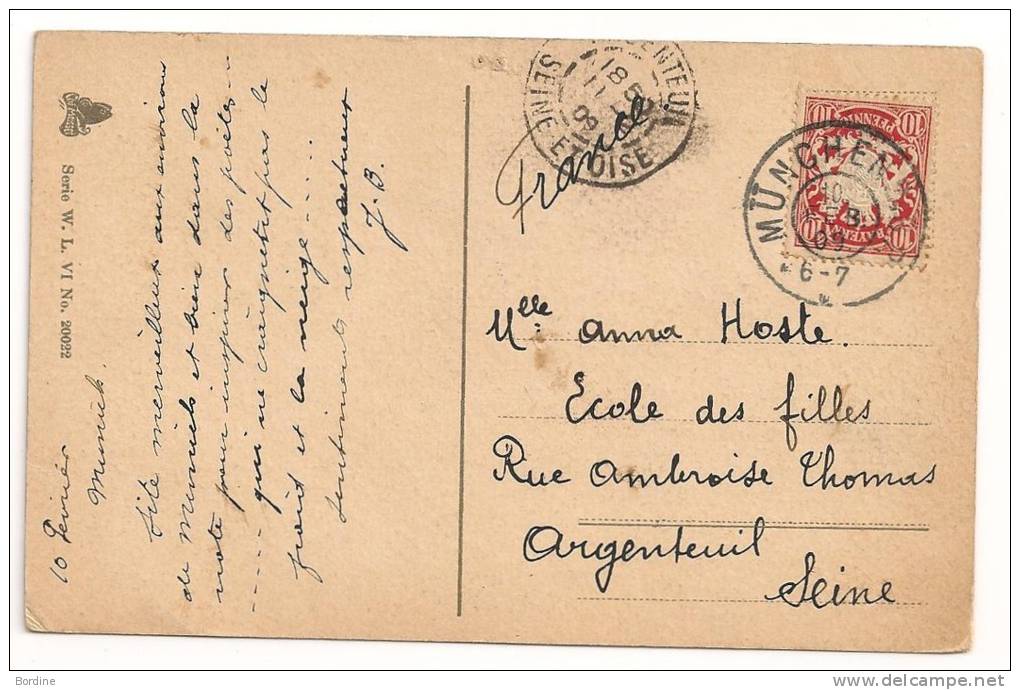 Serie W. L. VI No. 20022
10 Février
Munich.
Site merveilleux aux environs
de Munich et bien dans la
note pour inspirer des poètes
qui ne craignent pas le
froid et la neige....
Sentiments respectueux
J. B.
ARGENTEUIL
18
SEINE ET OISE
France
PFENNIG
10
10
BAYERN
10
MÜNCHEN
10
FEB.
09
6-7
Mlle. Anna Hoste.
Ecole des filles
Rue Ambroise Thomas
Argenteuil
Seine
Bordine
delcampe.net